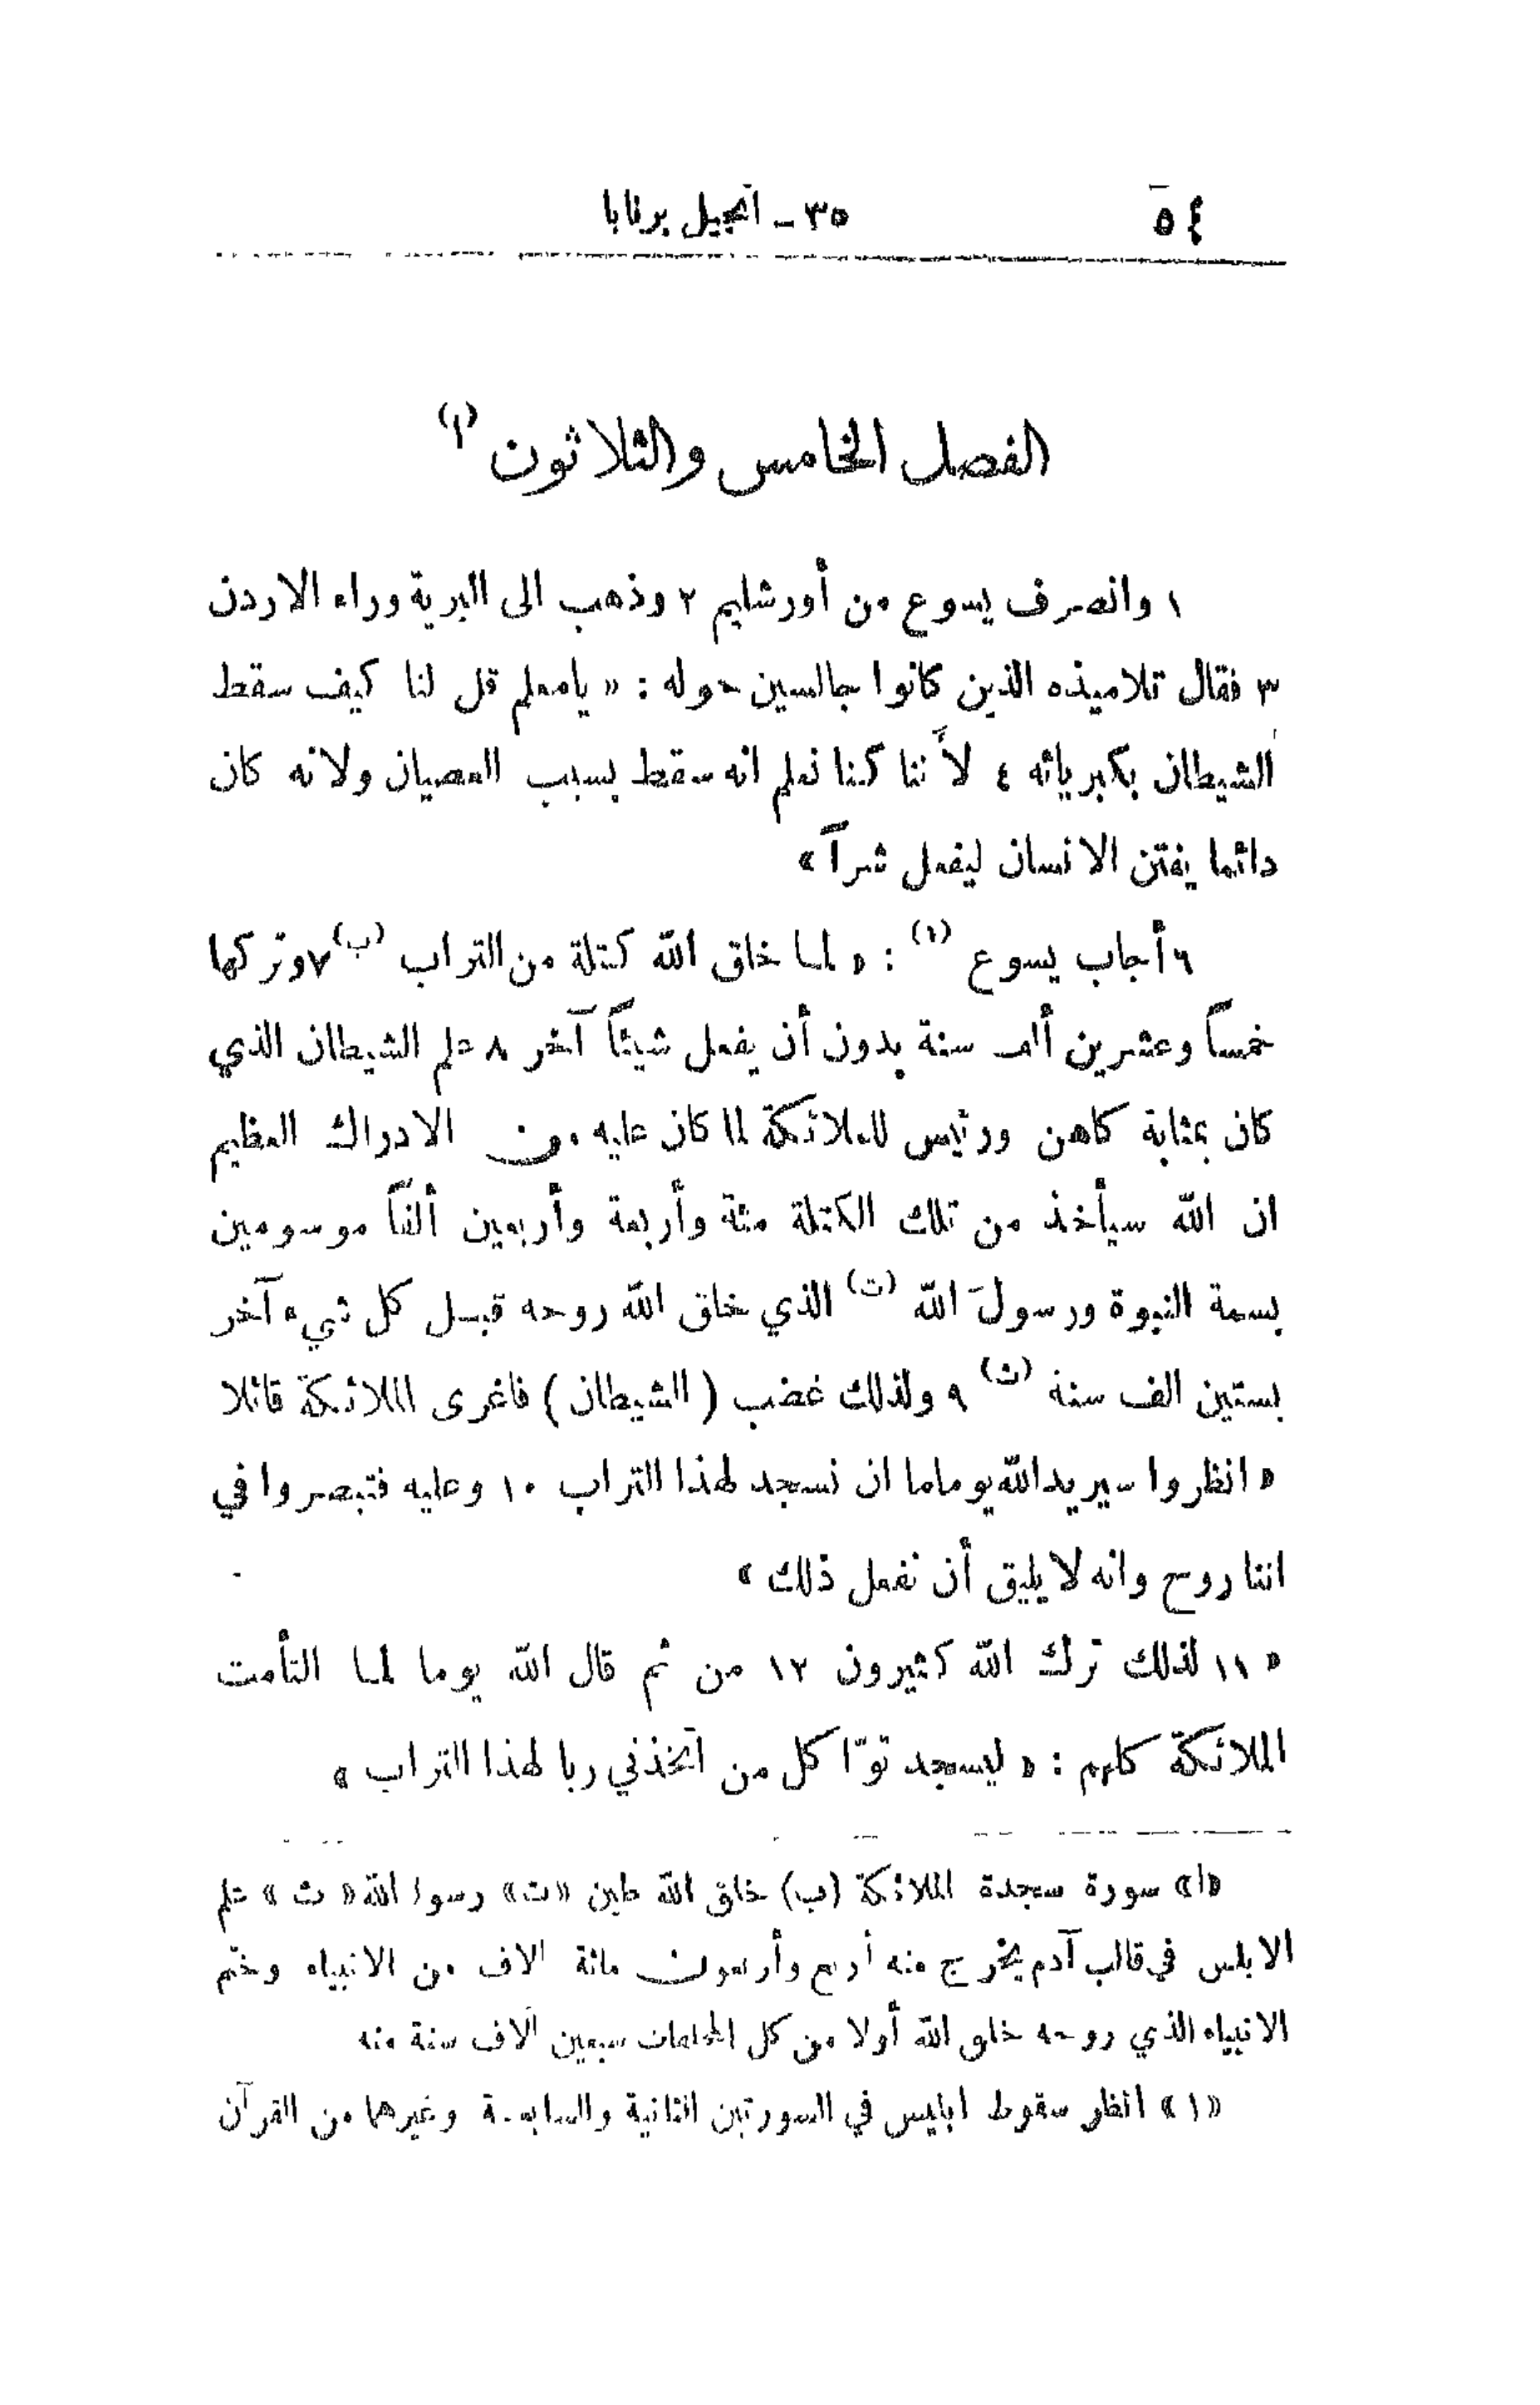 ٥٤
٣٥ـ انجيل برنابا
الفصل الخامس والثلاثون (ا)
١ وانصرف يسوع من أورشليم ٢ وذهب الى البرية وراء الاردن
٣ فقال تلاميذه الذين كانوا جالسين حوله : « يامعلم قل لنا كيف سقط
الشيطان بكبريائه ٤ لأننا كنا نعلم انه سقط بسبب العصيان ولانه كان
دائما يفتن الانسان ليفعل شراً »
٦ أجاب يسوع (١) : « لما خلق الله كتلة من التراب (ب) ٧ وتركها
خمساً وعشرين ألف سنة بدون أن يفعل شيئاً آخر ٨ علم الشيطان الذي
كان بمثابة كاهن ورئيس للملائكة لما كان عليه من الادراك العظيم
ان الله سيأخذ من تلك الكتلة مئة وأربعة وأربعين ألفاً موسومين
بسمة النبوة ورسولَ الله (ت) الذي خلق الله روحه قبل كل شيء آخر
بستين الف سنة (ث) ٩ ولذلك غضب ( الشيطان ) فاغرى الملائكة قائلا
« انظروا سيريد الله يوما ما ان نسجد لهذا التراب ١٠ وعليه فتبصروا في
اننا روح وانه لا يليق أن نفعل ذلك »
« ١١ لذلك ترك الله كثيرون ١٢ من ثم قال الله يوما لما التأمت
الملائكة كلهم : « ليسجد توّا كل من اتخذني ربا لهذا التراب »
«ا» سورة سجدة الملائكة (ب) خلق الله طين «ت» رسول الله « ث » علم
الابلس في قالب آدم يخرج منه أربع وأربعون مائة الاف من الانبياء وختم
الانبياء الذي روحه خلق الله أولا من كل المخلوقات سبعين آلاف سنة منه
«١» انظر سقوط ابليس في السورتين الثانية والسابعة وغيرهما من القرآن